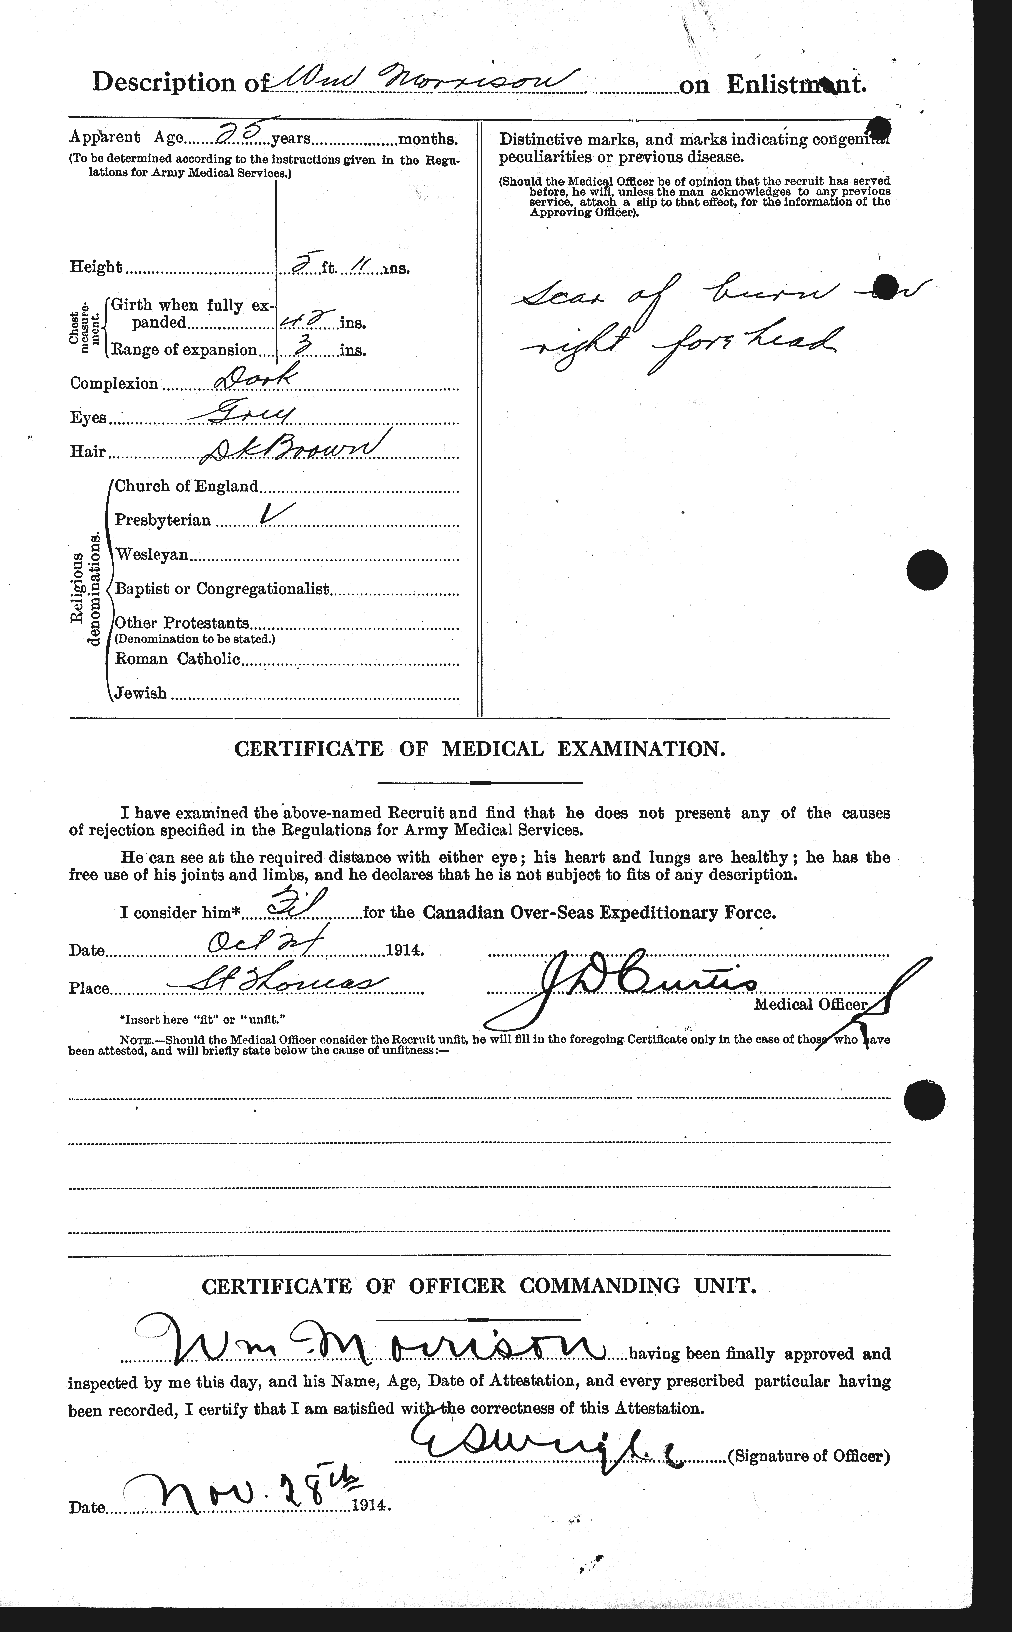 Description of Wm Morrison on Enlistment.
Apparent Age 25 years months.
(To be determined according to the instructions given in the Regu-
lations for Army Medical Services.)
Height 5 ft. 11 ins.
Chest measurement.
Girth when fully ex-
panded 42 ins.
Range of expansion 3 ins.
Complexion Dark
Eyes Grey
Hair Dk Brown
Religious denominations.
Church of England
Presbyterian V
Wesleyan
Baptist or Congregationalist
Other Protestants
(Denomination to be stated.)
Roman Catholic
Jewish
Distinctive marks, and marks indicating congenital
peculiarities or previous disease.
(Should the Medical Officer be of opinion that the recruit has served
before, he will, unless the man acknowledges to any previous
service, attach a slip to that effect, for the information of the
Approving Officer).
Scar of burn on
right forehead
CERTIFICATE OF MEDICAL EXAMINATION.
I have examined the above-named Recruit and find that he does not present any of the causes
of rejection specified in the Regulations for Army Medical Services.
He can see at the required distance with either eye; his heart and lungs are healthy; he has the
free use of his joints and limbs, and he declares that he is not subject to fits of any description.
I consider him* Fit for the Canadian Over-Seas Expeditionary Force.
Date Oct 24 1914.
Place St Thomas
J D Curtis
Medical Officer
*Insert here "fit" or "unfit."
NOTE.—Should the Medical Officer consider the Recruit unfit, he will fill in the foregoing Certificate only in the case of those who have
been attested, and will briefly state below the cause of unfitness:—
CERTIFICATE OF OFFICER COMMANDING UNIT.
Wm Morrison having been finally approved and
inspected by me this day, and his Name, Age, Date of Attestation, and every prescribed particular having
been recorded, I certify that I am satisfied with the correctness of this Attestation.
(Signature of Officer)
Date Nov. 28th 1914.